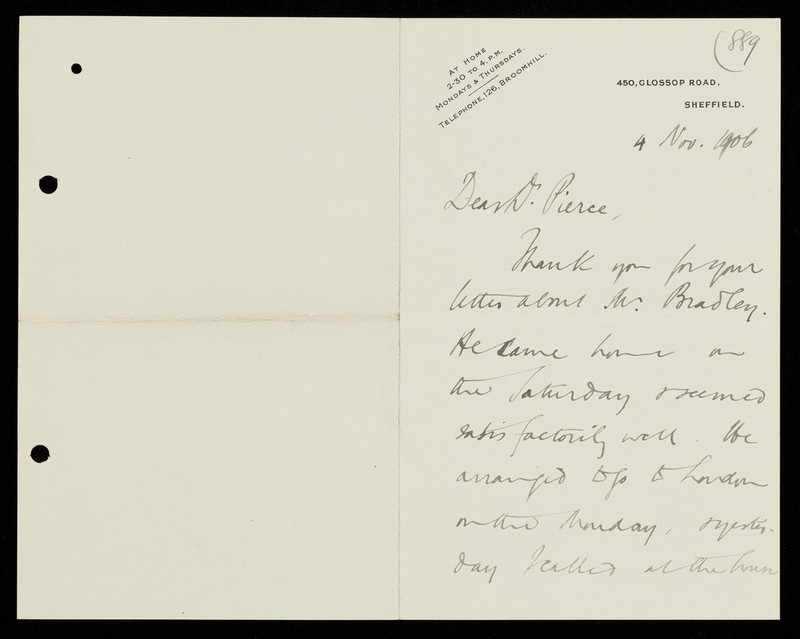 (889
AT HOME
2-30 TO 4. P.M.
MONDAYS & THURSDAYS.
TELEPHONE, 126, BROOMHILL.
450, GLOSSOP ROAD,
SHEFFIELD.
4 Nov. 1906
Dear Dr. Pierce,
Thank you for your
letter about Mr. Bradley.
He came home on
the Saturday & seemed
satisfactorily well. He
arranged to go to London
on the Monday, & yester-
day I called at the house